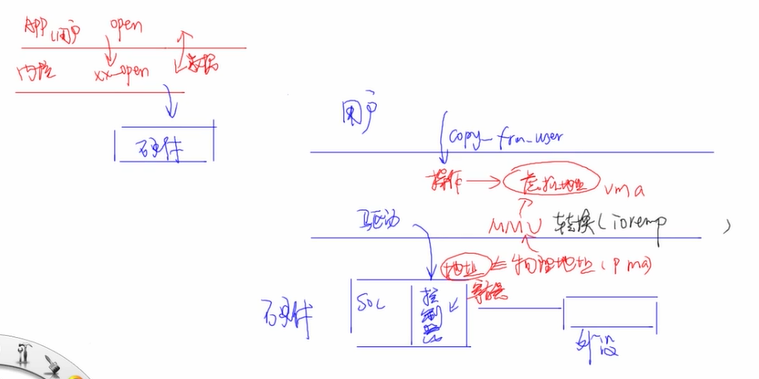 APP 用户 open
内核 xx_open 数据
硬件
用户
copy_frm_user
操作 虚拟地址 vma
驱动 MMU 转换(Ioremp )
地址 = 物理地址(pma)
硬件 SOC 控制器 寄存器
外设